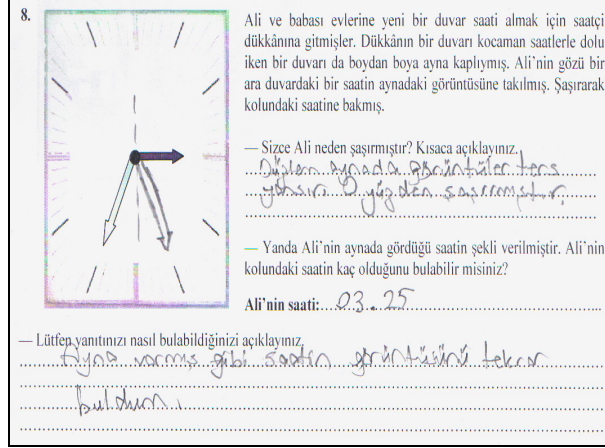 8.
Ali ve babası evlerine yeni bir duvar saati almak için saatçi
dükkânına gitmişler. Dükkânın bir duvarı kocaman saatlerle dolu
iken bir duvarı da boydan boya ayna kaplıymış. Ali'nin gözü bir
ara duvardaki bir saatin aynadaki görüntüsüne takılmış. Şaşırarak
kolundaki saatine bakmış.
— Sizce Ali neden şaşırmıştır? Kısaca açıklayınız.
Düzlem aynada görüntüler ters
yansır. O yüzden şaşırmıştır.
— Yanda Ali'nin aynada gördüğü saatin şekli verilmiştir. Ali'nin
kolundaki saatin kaç olduğunu bulabilir misiniz?
Ali'nin saati: 03.25
— Lütfen yanıtınızı nasıl bulabildiğinizi açıklayınız.
Ayna varmış gibi saatin görüntüsünü tekrar
buldum.